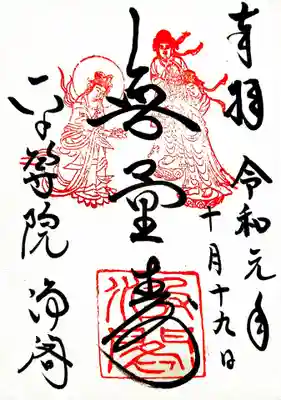 奉拝
令和元年
十月十九日
無量寿
平等院
浄閣